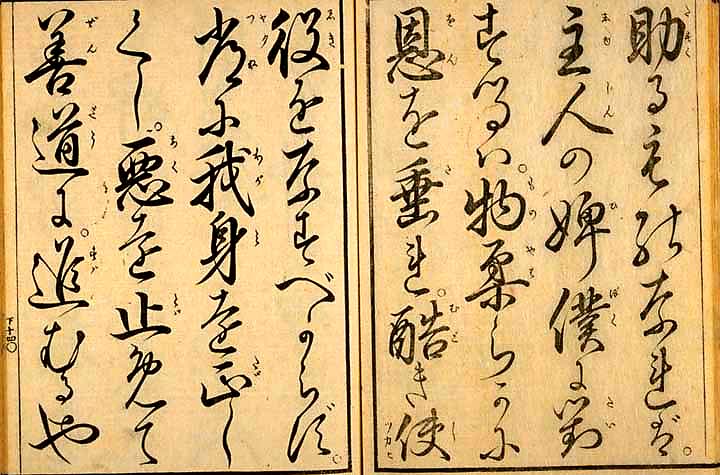 助るものなれば。
主人の婢僕に対
するハ。物柔らかに
恩を垂れ。酷き使
役をなすべからず。
常に我身を正し
くし。悪を止めて
善道に。進むるや
下十四〇